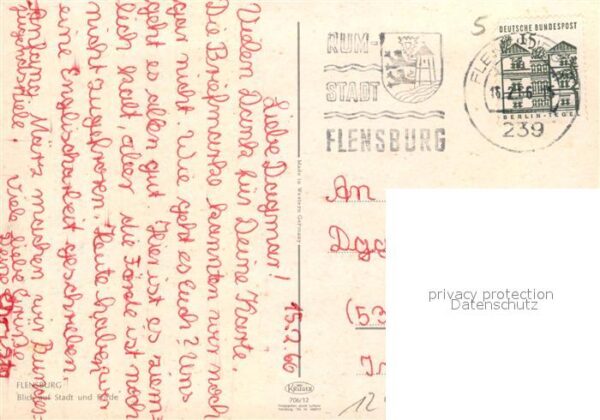 15.2.66
Liebe Dagmar!
Vielen Dank für Deine Karte.
Die Briefmarke kannten wir noch
gar nicht. Wie geht es Euch? Uns
geht es allen gut. Hier ist es ziem-
lich kalt, aber die Förde ist noch
nicht zugefroren. Heute haben wir
eine Englischarbeit geschrieben.
Anfang März machen wir Bundes-
jugendspiele. Viele liebe Grüße
Deine
FLENSBURG
Blick auf Stadt und Förde
Made in Western Germany
Krüger
706/12
RUM-
STADT
FLENSBURG
5
DEUTSCHE BUNDESPOST
15
BERLIN-TEGEL
FLE
239
An
Dag
(53
privacy protection
Datenschutz
12